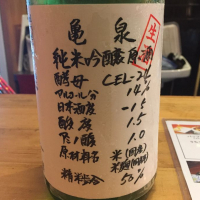 亀泉
生
純米吟醸原酒
酵母 CEL-24
アルコール分 14%
日本酒度 -15
酸度 1.5
アミノ酸 1.0
原材料名 米(国産)
米麹(国産米)
精米歩合 50%